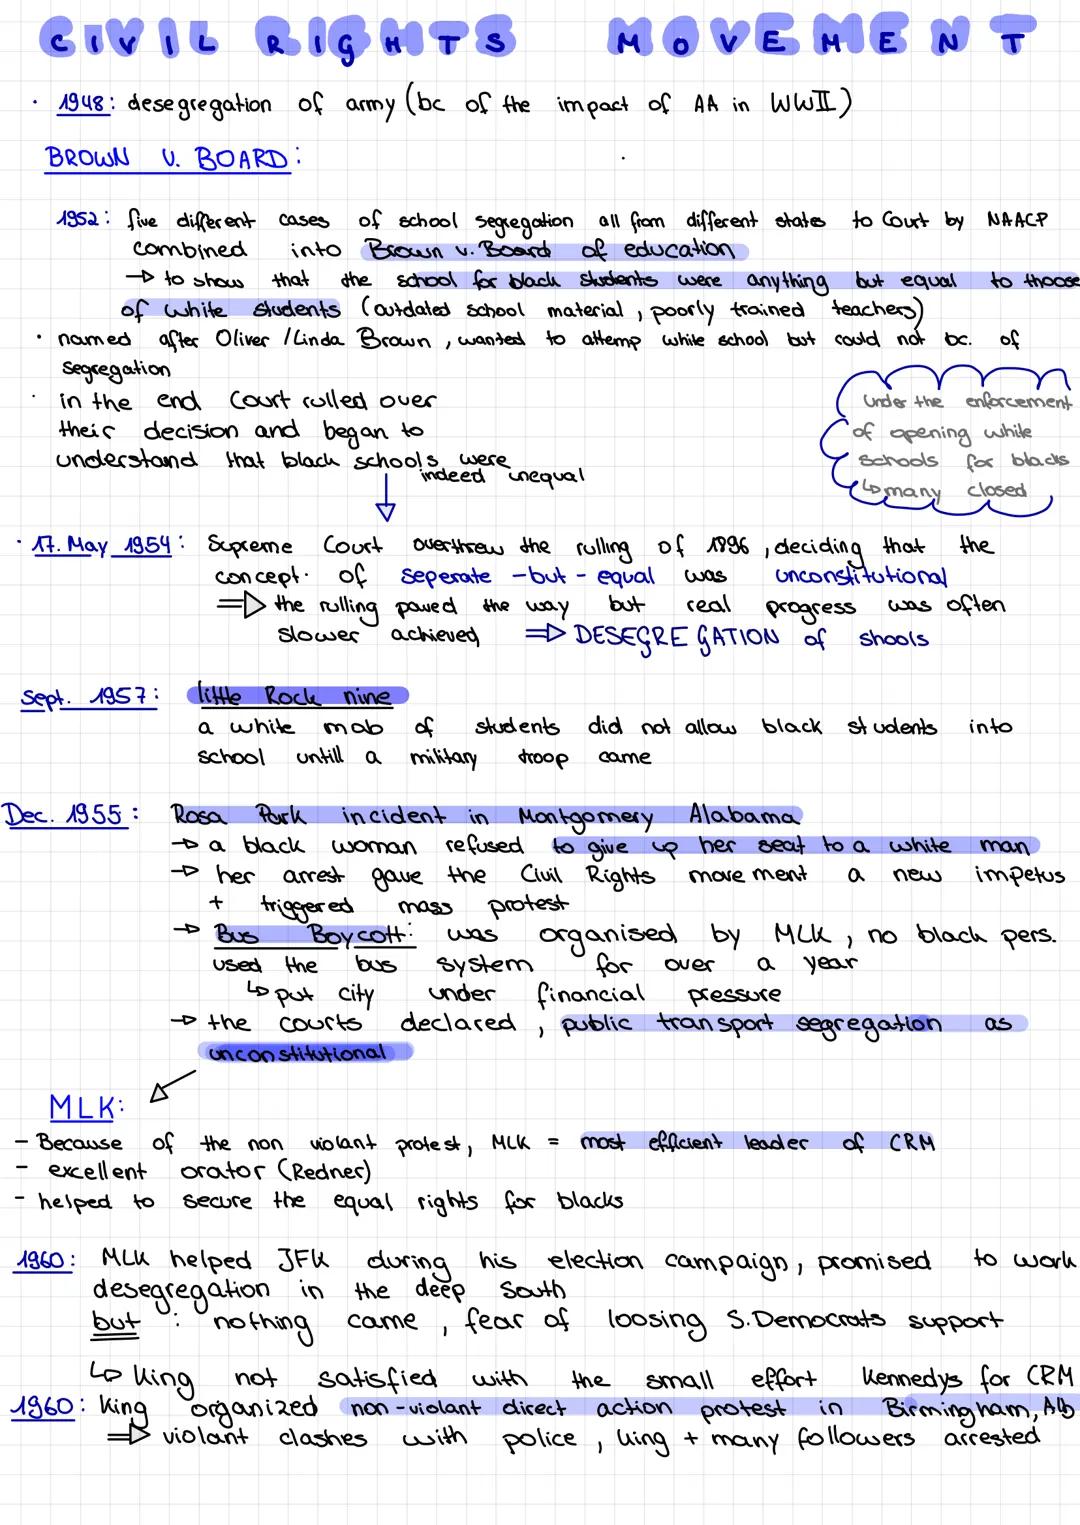 CIVIL RIGHTS MOVEMENT
· 1948: desegregation of army (bc of the impact of AA in WWII)
BROWN V. BOARD:
1952: five different cases of school segregation all from different states to Court by NAACP
combined into Brown v. Board of education
→ to show that the school for black students were anything but equal to thoose
of white students (outdated school material, poorly trained teachers)
· named after Oliver / Linda Brown, wanted to attemp white school but could not bc. of
segregation
· in the end Court rulled over
their decision and began to
understand that black schools were
indeed unequal
under the enforcement
of opening white
schools for blacks
↳ many closed
· 17. May 1954: Supreme Court overthrew the rulling of 1896, deciding that the
concept of seperate -but- equal was unconstitutional
⇒ the rulling paved the way but real progress was often
slower achieved ⇒ DESEGREGATION of shools
Sept. 1957: little Rock nine
a white mob of students did not allow black students into
school untill a military troop came
Dec. 1955: Rosa Park incident in Montgomery Alabama
→ a black woman refused to give up her seat to a white man
→ her arrest gave the Civil Rights movement a new impetus
+ triggered mass protest
→ Bus Boycott: was organised by MLK, no black pers.
used the bus system for over a year
↳ put city under financial pressure
→ the courts declared, public transport segregation as
unconstitutional
MLK:
- Because of the non violant protest, MLK = most efficient leader of CRM
- excellent orator (Redner)
- helped to secure the equal rights for blacks
1960: MLK helped JFK during his election campaign, promised to work
desegregation in the deep South
but: nothing came, fear of loosing S.Democrats support
↳ King not satisfied with the small effort Kennedys for CRM
1960: King organized non-violant direct action protest in Birmingham, Alb
⇒ violant clashes with police, King + many followers arrested